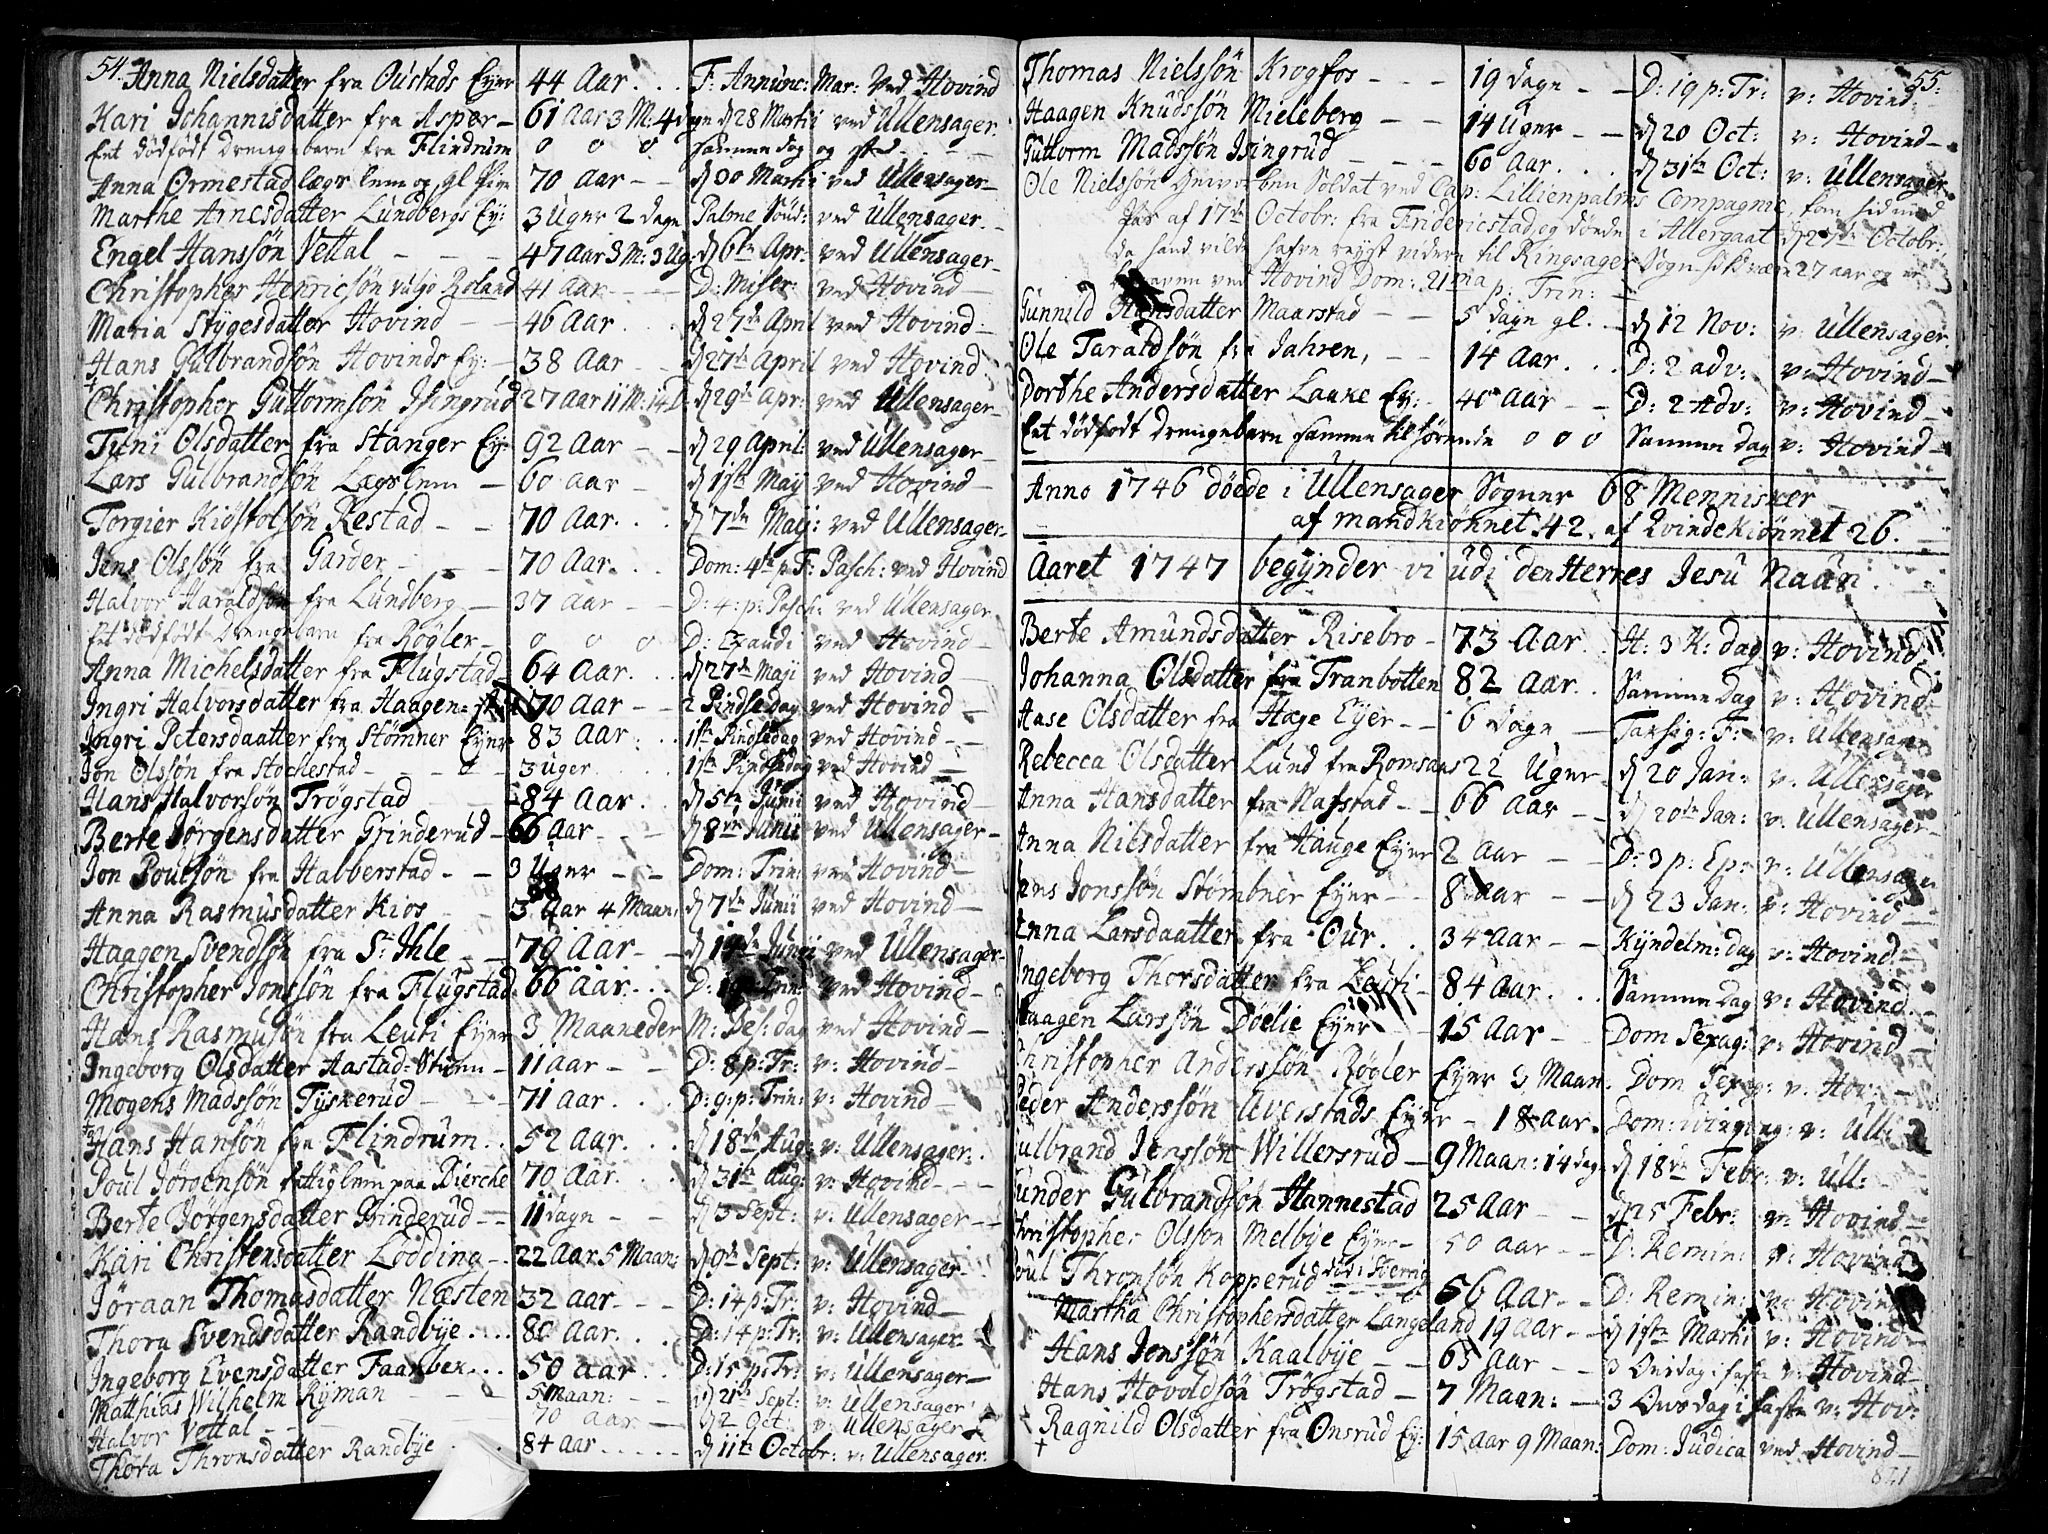 54.
Anna Nielsdatter fra Oustads Eyer 44 Aar . . . F: Annunc: Mar: Ved Hovind
Kari Johannisdatter fra Asper – 61 Aar 3 M: 4 dagn d 28 Martii ved Ullensager.
Eet dödfödt drengebarn fra Flindrum o o o Samme dag og sted
Anna Ormestad lægs lem og gl Pige 70 Aar – – d 30 Martii ved Ullensager –
Marthe Arnesdatter Lundbergs Ey: 3 Uger 2 dagn Palme Sönd: ved Ullensager.
Engel Hanssön Vettal – – – 47 Aar 3 M: 3 Ug: d 6te Apr: ved Ullensager –
Christopher Henricsön vulgo Roland 41 Aar – – D: Miser: ved Hovind –
Maria Stygesdatter Hovind – – 46 Aar . . . d 27de April ved Hovind –
Hans Gulbrandsön Hovinds Ey: – 38 Aar – – d 27de April ved Hovind.
Christopher Guttormsön Isingrud 27 Aar 11 M: 14 D: d 29de Apr: ved Ullensager –
Tyni Olsdatter fra Stanger Ey: 92 Aar – – d 29 April: ved Ullensager –
Lars Gulbrandsön Lægslem – 60 aar – d 1ste Maij ved Hovind –
Torgier Kidstolsön Restad – – 70 Aar. . . d 7de Maij: ved Ullensager –
Jens Olssön fra Garder – – – 70 Aar. . . Dom: 4de p F: Pasch: ved Hovind
Halvor Haraldsön fra Lundberg – 37 Aar – – D: 4: p: Pasch: ved Ullensager.
Eet dödfödt Drengebarn fra Rögler – o o o D: Exaudi ved Hovind –
Anna Michelsdatter fra Flugstad – 64 Aar. . . d 27de Maji ved Hovind –
Ingri Halvorsdatter fra Haagen = 70 Aar – – 2 Pindsedag ved Hovind –
Ingri Petersdaatter fra Stömner Eyer 83 Aar . . 1ste Pindsedag ved Hovind –
Jon Olssön fra Stochestad – – 3 uger . . . 1ste Pindsedag ved Hovind –
Hans Halvorsön Trögstad 84 Aar . . d 5te Junii ved Hovind –
Berte Jörgensdatter Grinderud – 66 Aar – – d 8de Junii ved Ullensager –
Jon Poulsön fra Habberstad – – 3 Uger – – Dom: Trin: ved Hovind –
Anna Rasmusdatter Kios – – 3 Aar 4 Maan: d 7de Junii ved Hovind –
Haagen Svendsön fra St: Ihle – – 70 Aar – – d Junii ved Ullensager –
Christopher Jonssön fra Flugstad. 66 Aar. . . D: Trin: ved Hovind –
Hans Rasmusön fra Leuti Eyer 3 Maaneder M: Bes: dag ved Hovind –
Ingeborg Olsdatter Aastad = Stuen – 11 aar – – D: 8 p: Tr: v: Hovind –
Mogens Madssön Tyskerud – – 71 aar . . . D: 9: p: Trin: v: Hovind –
Hans Hansön fra Flindrum . . 52 Aar. . . d 18de Aug: v: Ullensager: .
Poul Jörgensön fattiglem paa Bierche 70 Aar. . . d 31te Aug: v: Hovind – – –
Berte Jörgensdatter Grinderud – – 11 dagn – – d 3 Sept: v: Ullensager – –
Kari Christensdatter Lödding – . 22 Aar 5 Maan: d 9de Sept: v: Ullensager – .
Jöraan Thomasdatter Næsten 32 aar – – – D: 14 p: Tr: v: Hovind –
Thora Svendsdatter Randbye . . . . 80 Aar. . . D: 14 p: Tr: v: Ullensager –
Ingeborg Evensdatter Faarbek . . . 50 aar . . D: 15 p: Tr: v: Ullensager –
Matthias Wilhelm Ryman – – 5 Maan: – – d 21te Sept: v: Ullensager
Halvor Vettal – – 70 aar – – d 2 Oct: v: Ullensager
Thora Thronsdatter Randbye . . 84 aar . . . . . d 11te Octobr: v: Ullensager.
55:
Thomas Nielssön Krogfos – – – 19 dagn – – D: 19 p: Tr: v: Hovind –
Haagen Knudssön Mieleberg – – 14 Uger – – d 20 Oct: v: Hovind –
Guttorm Madssön Isingrud – – – 60 Aar. . . . d 31te Oct: v: Ullensager
Ole Nielssön Soldat ved Cap: Lillienpalms Compagnie, som hid med
Pas af 17de Octobr: fra Fridericstad, og döede i Allergaat d 27de Octobr:
da hand vilde hafve reyst videre til Ringsager Sogn 27 aar og er
ved Hovind Dom: 21ma p: Trin: –
Gunnild Hansdatter Maarstad – – 5 dagn gl. – d 12 Nov: v: Ullensager.
Ole Taraldsön fra Jahren, – – 14 Aar . . . D: 2 adv: v: Hovind –
Dorthe Andersdatter Laake Ey: – 40 Aar – – D: 2 Adv: v: Hovind –
Eet dödfödt drengebarn samme tilhörende o o o Samme dag v: Hovind –
Anno 1746 döede i Ullensager Sogner 68 Mennisker
af mandkiönnet 42. af Qvindekiönnet 26.
Aaret 1747 begynder vi udi den Herres Jesu Naun.
Berte Amundsdatter Risebro – 73 Aar. . H: 3 K: dag v: Hovind.
Johanna Olsdatter fra Tranbotten 82 aar. . Samme dag v: Hovind –
Aase Olsdatter fra Hage Eyer – – 6 dagn – Tarsig: F: v: Ullensager
Rebecca Olsdatter Lund fra Romsaas 22 Uger. d 20 Jan: v: Ullensager
Anna Hansdatter fra Nafstad – – 66 aar – – d 20de Jan: v: Ullensager –
Anna Nilsdatter fra Hauge Eyer 2 Aar – – D: 3 p: Ep: v: Ullensager
Jonssön Stömbner Eyer – – 8 aar – – d 23 Jan: v: Hovind –
Anna Larsdaatter fra Our . . 34 aar – – Kyndelm: dag v: Hovind –
Ingeborg Thorsdatter fra Leuti – 84 aar. . . Samme dag v: Hovind.
Haagen Larssön Döelie Eyer – – 15 Aar – Dom Sexag: v: Hovind –
Christopher Anderssön Rögler Eyer 3 Maan. Dom Sexag: v. Hov: –
Peder Anderssön Averstads Eyer – 18 aar. Dom: qvinqvag: v: Ull:
Gulbrand Jenssön Willersrud – 9 Maan: 14 dage d 18de Febr: v: Ull: –
Gunder Gulbrandsön Hannestad 25 Aar – – d 25 Febr: v: Hovind –
Christopher Olsson Melbye Eyer – 50 aar – – D: Remin: v: Hovind
Poul Thronsön Kopperud död i Söerig 56 Aar – – D: Remin: v: Hovind
Martha Christophersdatter Langeland 19 aar – – d 1ste Martii v: Hovind –
Hans Jonssön Kaalbye – – 63 Aar – – 3 Onsdag i faste v: Hovind –
Hans Hovoldsön Trögstad – 7 Maan: – 3 Onsdag i faste v: Hov:
Ragnild Olsdatter fra Onsrud Ey: 15 aar 9 Maan: Dom: Judica ved Hovind –